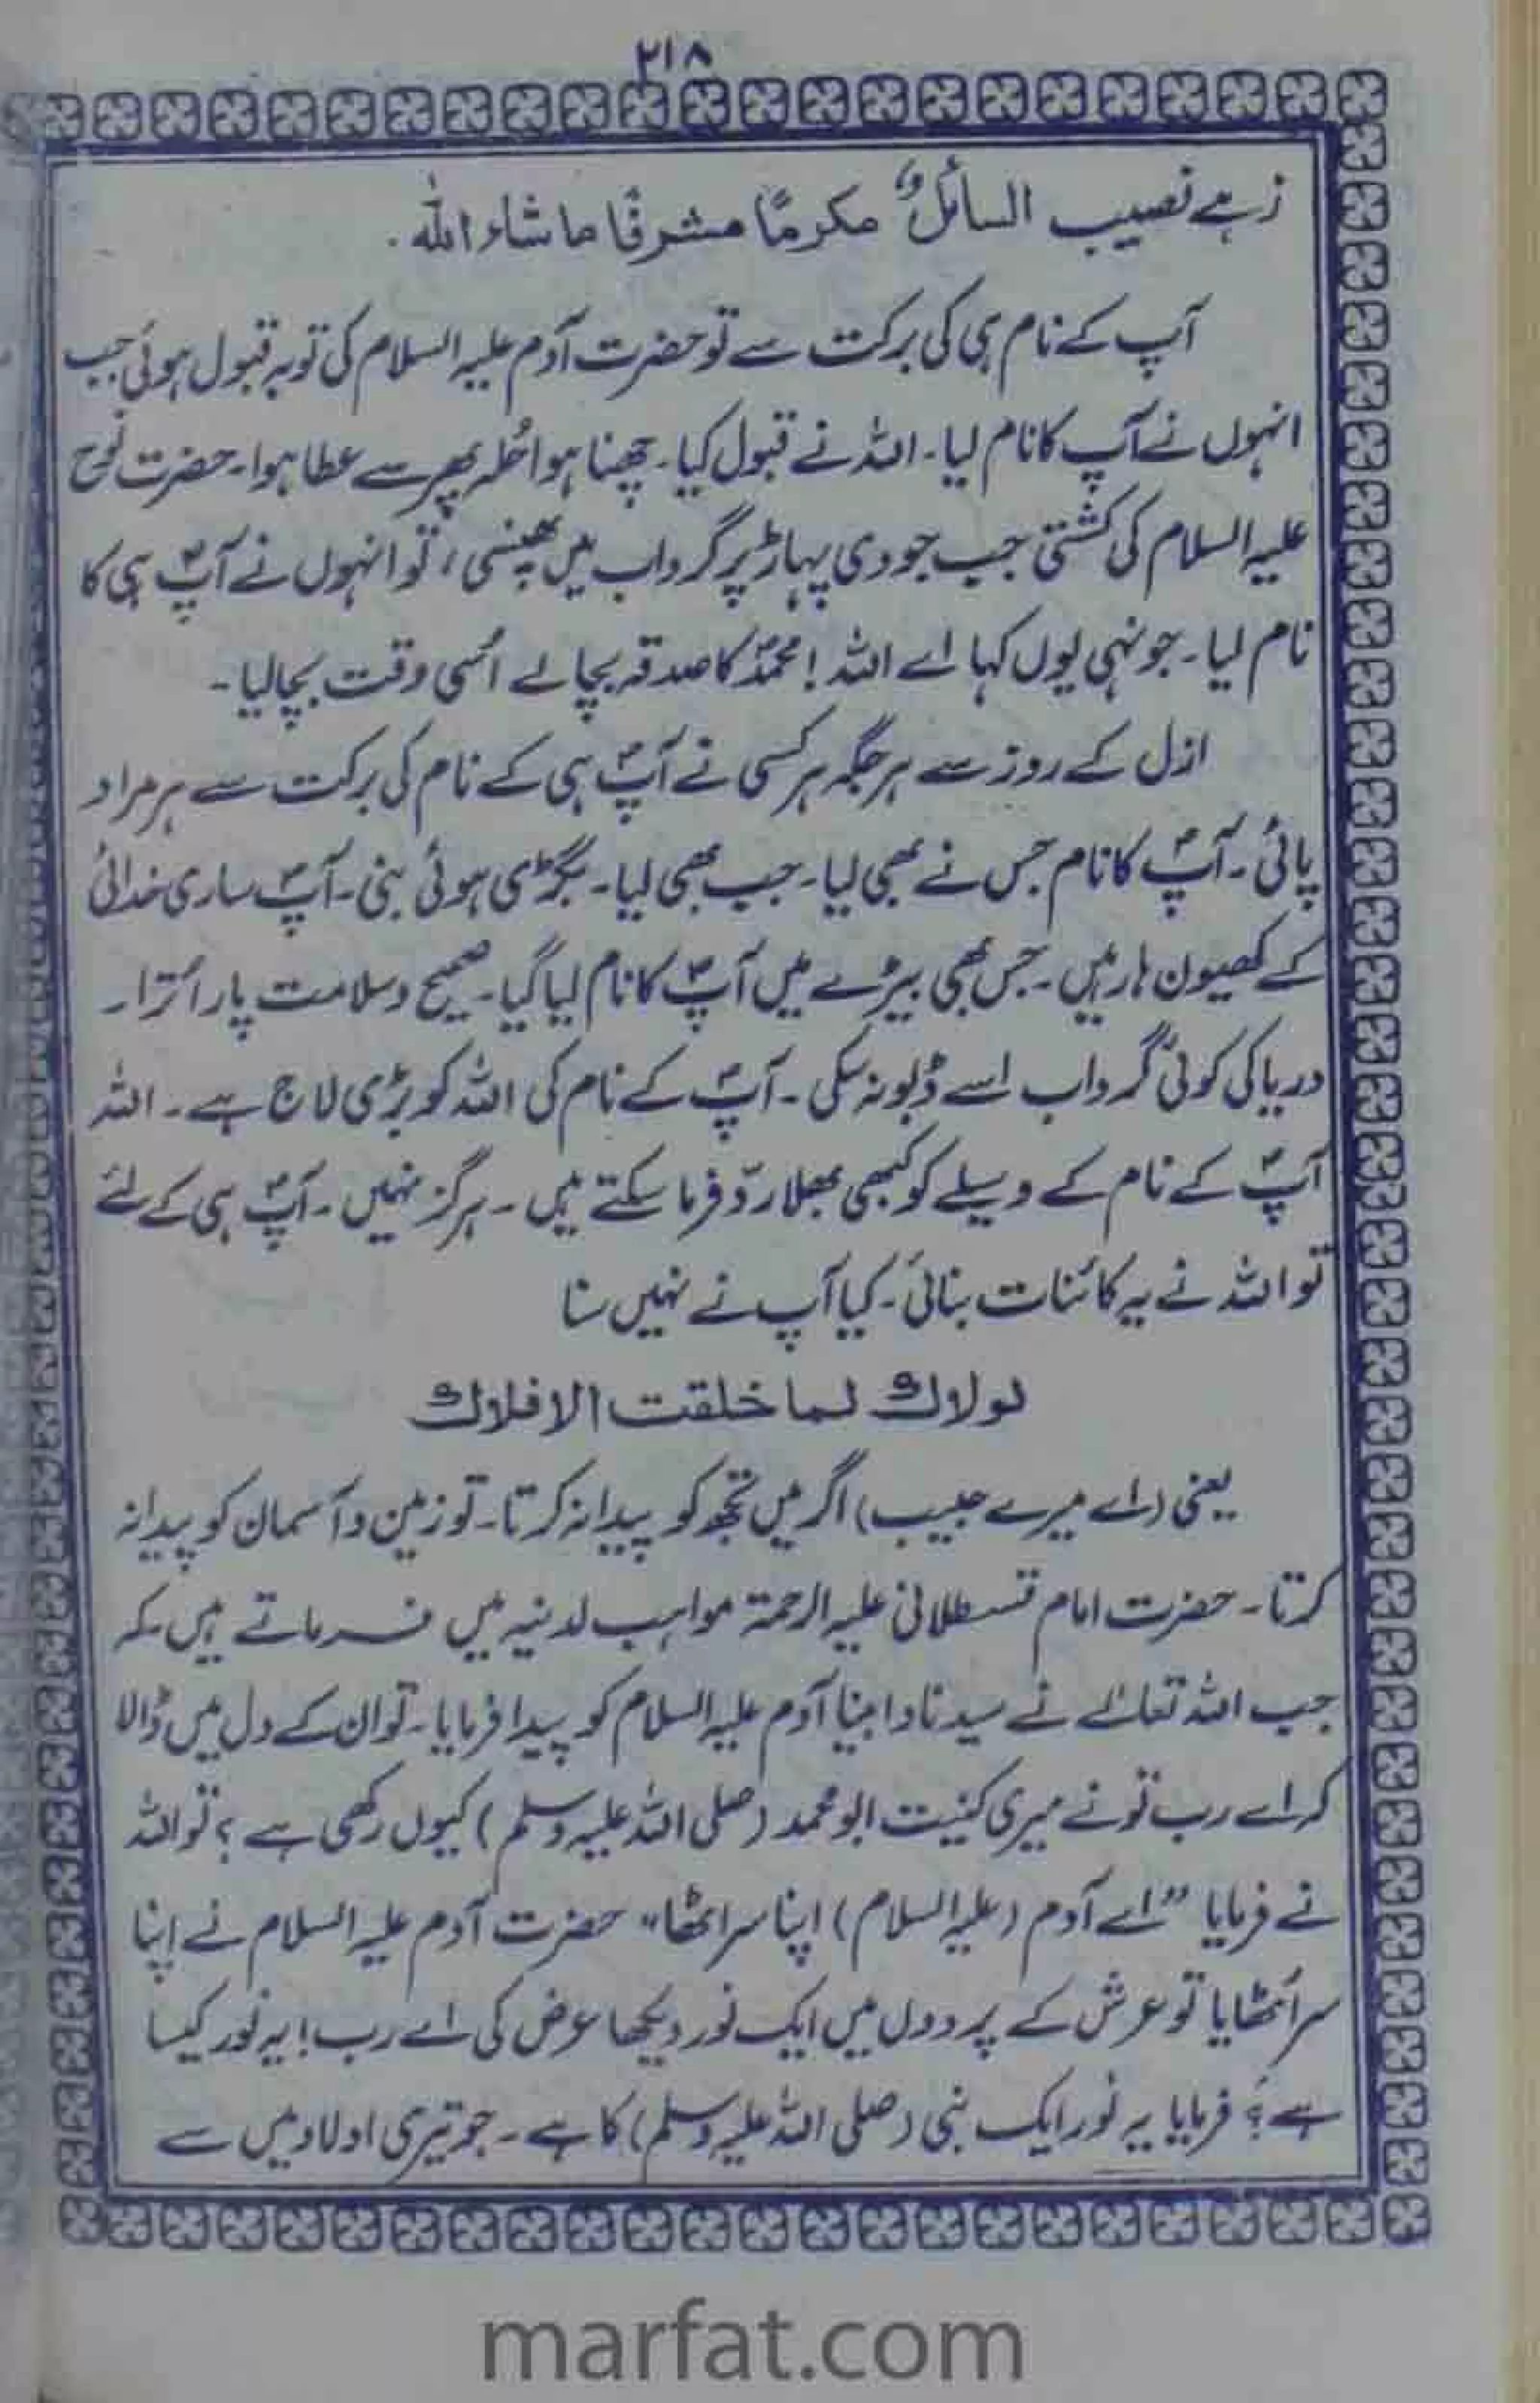 ۲۱۸
زہے نصیب السائلؓ مکرمًا مشرفًا ماشاء اللہ۔
آپ کے نام ہی کی برکت سے تو حضرت آدم علیہ السلام کی توبہ قبول ہوئی جب
انہوں نے آپ کا نام لیا۔ اللہ نے قبول کیا۔ چھنا ہوا حُلہ پھر سے عطا ہوا۔ حضرت نوح
علیہ السلام کی کشتی جب جودی پہاڑ پر گرداب میں پھنسی، تو انہوں نے آپؐ ہی کا
نام لیا۔ جونہی یوں کہا اے اللہ! محمدؐ کا صدقہ بچالے اُسی وقت بچالیا۔
ازل کے روز سے ہر جگہ ہر کسی نے آپؐ ہی کے نام کی برکت سے ہر مراد
پائی۔ آپؐ کا نام جس نے بھی لیا۔ جب بھی لیا۔ بگڑی ہوئی بنی۔ آپؐ ساری خدائی
کے کھیون ہار ہیں۔ جس بھی بیڑے میں آپؐ کا نام لیا گیا۔ صحیح و سلامت پار اُترا۔
دریا کی کوئی گرداب اسے ڈبو نہ سکی۔ آپؐ کے نام کی اللہ کو بڑی لاج ہے۔ اللہ
آپؐ کے نام کے وسیلے کو کبھی بھلا ردّ فرما سکتے ہیں۔ ہرگز نہیں۔ آپؐ ہی کے لئے
تو اللہ نے یہ کائنات بنائی۔ کیا آپ نے نہیں سنا
لولاك لما خلقت الافلاك
یعنی (اے میرے حبیب) اگر میں تجھ کو پیدا نہ کرتا۔ تو زمین و آسمان کو پیدا نہ
کرتا۔ حضرت امام قسطلانی علیہ الرحمۃ مواہب لدنیہ میں فرماتے ہیں۔ کہ
جب اللہ تعالےٰ نے سیدنا و ابینا آدم علیہ السلام کو پیدا فرمایا۔ تو ان کے دل میں ڈالا
کہ اے رب تو نے میری کنیت ابو محمد (صلی اللہ علیہ وسلم) کیوں رکھی ہے؟ تو اللہ
نے فرمایا ”اے آدم (علیہ السلام) اپنا سر اٹھا“ حضرت آدم علیہ السلام نے اپنا
سر اُٹھایا تو عرش کے پردوں میں ایک نور دیکھا عرض کی اے رب! یہ نور کیسا
ہے؟ فرمایا یہ نور ایک نبی (صلی اللہ علیہ وسلم) کا ہے۔ جو تیری اولاد میں سے
marfat.com